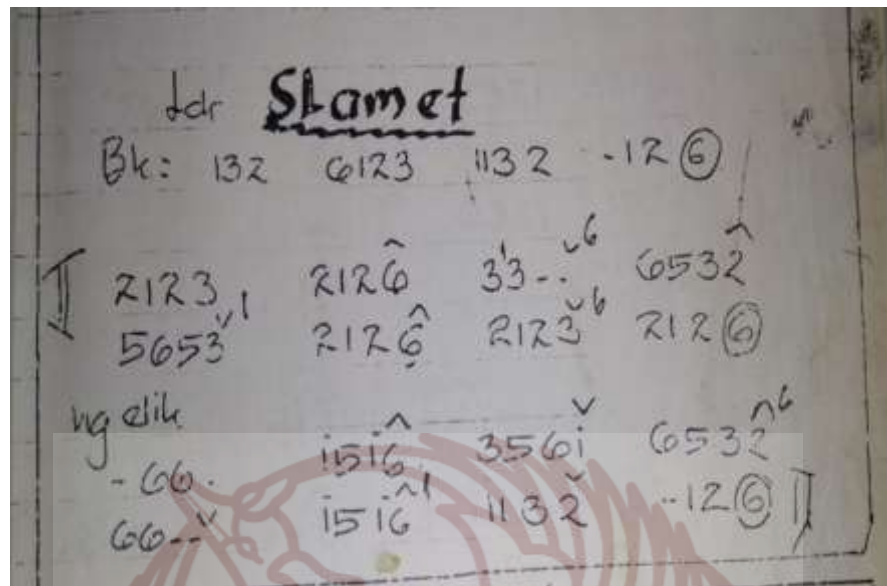 Ldr Slamet
Bk: 132 6123 1132 -12⑥
2123 2126̂ 33--̌⁶ 6532̂
5653̌¹ 2126̣̂ 2123̌⁶ 212⑥
ngelik
-66- i5i6̂ 356ǐ 6532̂⁶
66--̌ i5i6̂¹ 1132̌ --12⑥